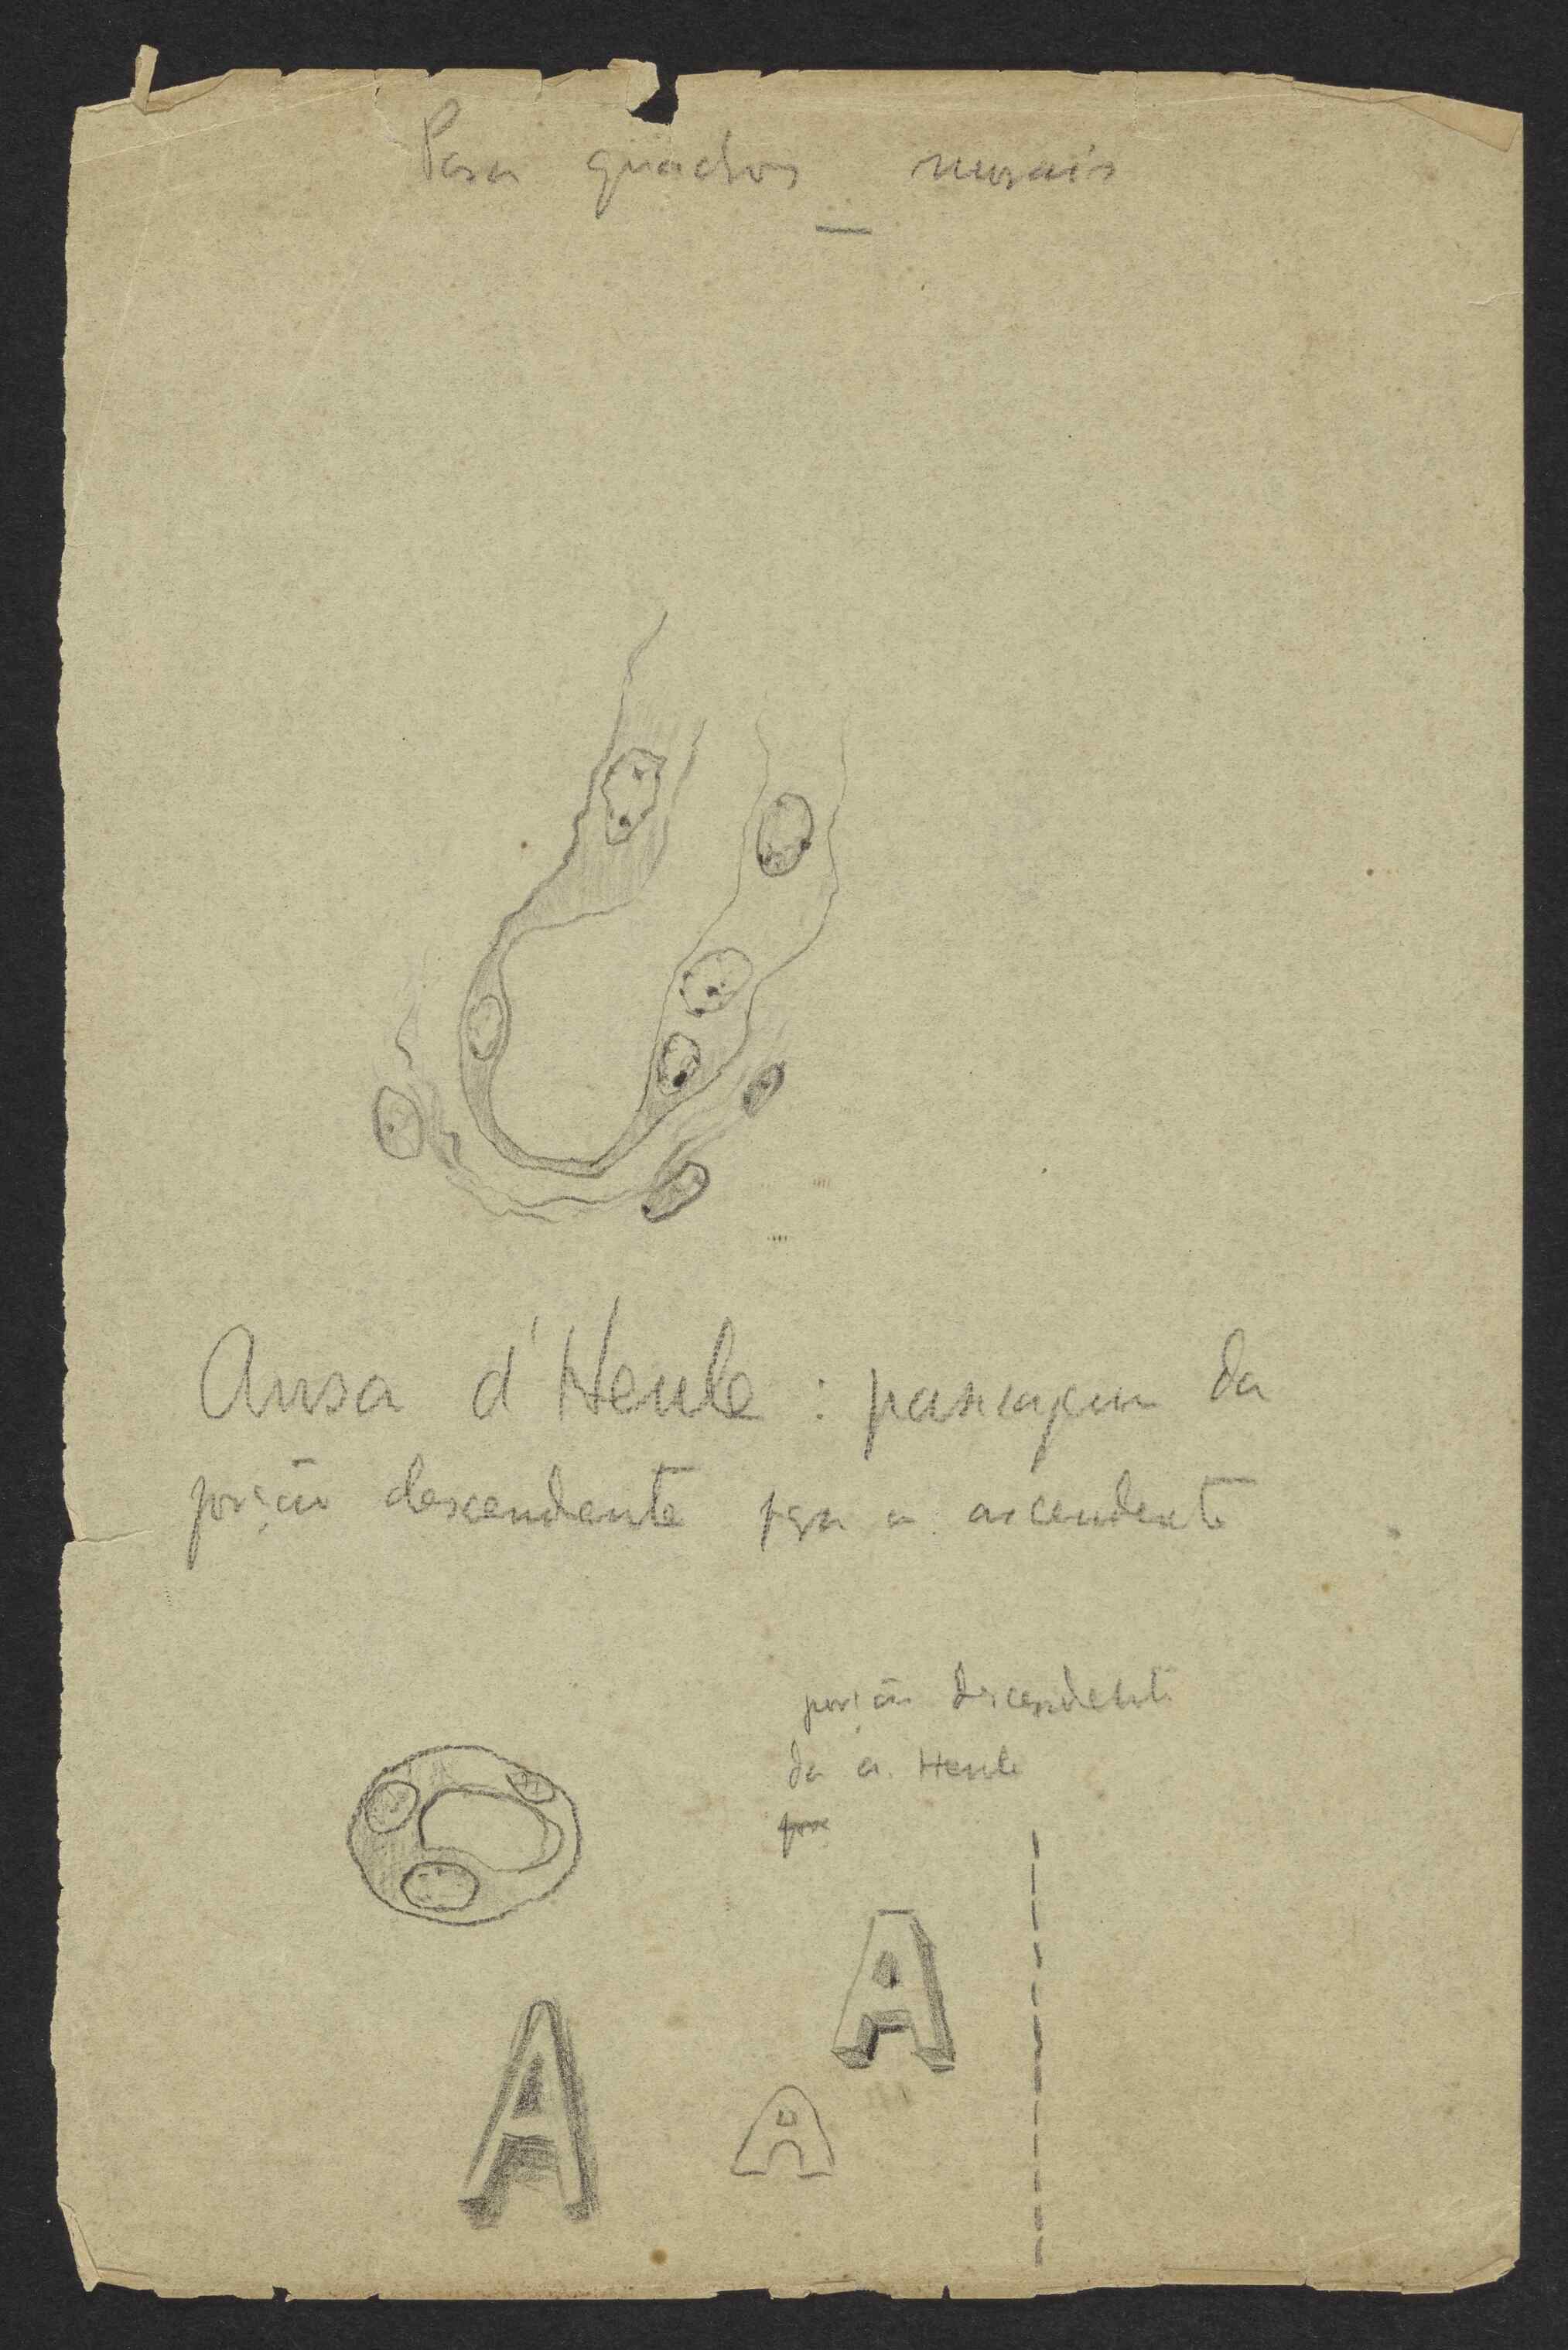 Para quadros murais
Ansa d'Henle : passagem da
porção descendente para a ascendente
porção descendente
da a. Henle
A
A
A